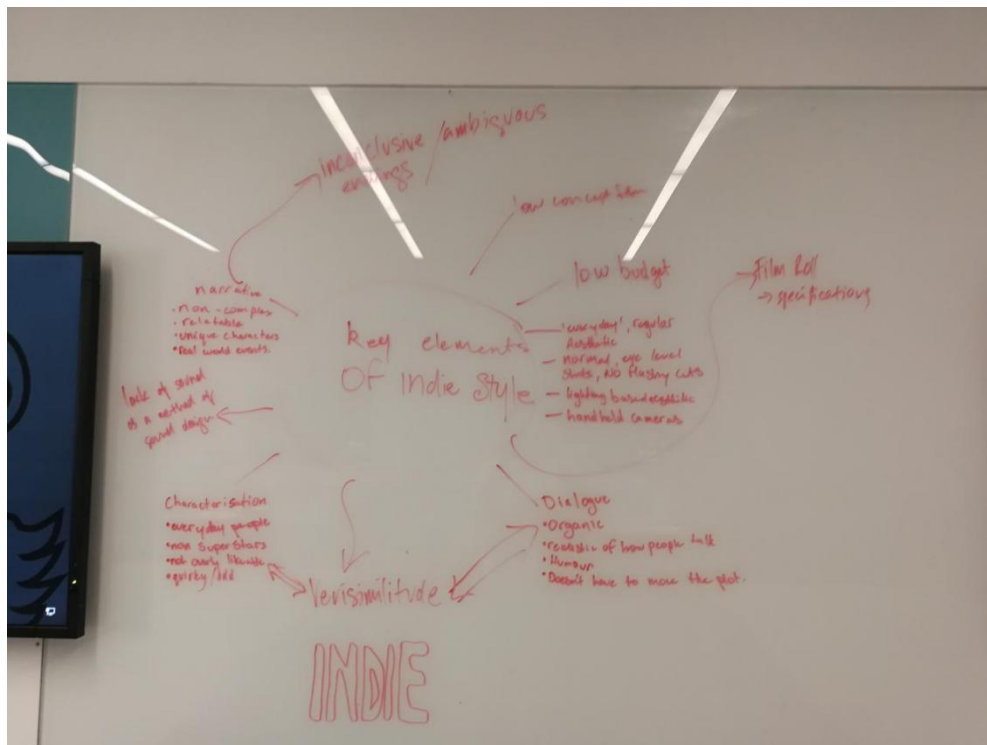 inconclusive / ambiguous
endings
low concept film
low budget
Film Roll
→ specifications
narrative
• non-complex
• relatable
• unique characters
• real world events.
key elements
OF Indie Style
'everyday', regular
Aesthetic
– normal, eye level
shots, NO flashy cuts
– lighting based
– handheld cameras
lack of sound
as a method of
sound design
Characterisation
• everyday people
• non superstars
• not overly likeable
• quirky/odd
Dialogue
• Organic
• realistic of how people talk
• Humour
• Doesn't have to move the plot.
Verisimilitude
INDIE